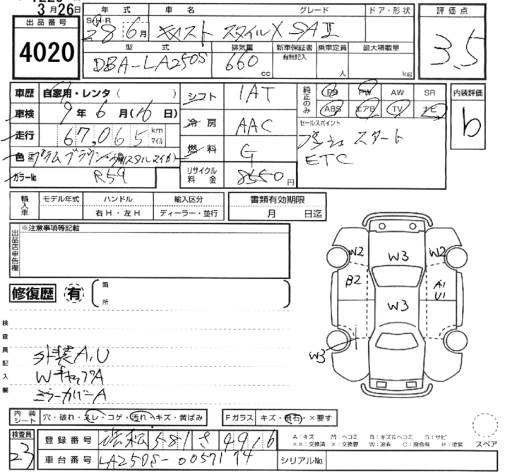 3月26日
年式
車名
グレード
ドア・形状
評価点
出品番号
4020
S・H・R
28年6月
キャスト スタイルX SAⅡ
3.5
型式
排気量
新車保証書
有無記入
乗車定員
最大積載量
DBA-LA250S
660
cc
人
kg
車歴
自家用・レンタ( )
シフト
IAT
純正のみ
PS
PW
AW
SR
内装評価
車検
9年6月(16)日
ABS
エアB
TV
ナビ
b
冷房
AAC
セールスポイント
走行
67,065
km
マイル
プッシュスタート
色
燃料
G
ETC
カラーNo
R59
リサイクル料金
8550円
輸入車
モデル年式
ハンドル
輸入区分
書類有効期限
右H・左H
ディーラー・並行
月 日迄
出品店申告欄
※注意事項等記載
修復歴
有
箇所
W2
W3
W2
B2
A1
U1
W3
W3
検査員記入欄
外装A,U
WキャップA
ミラーカバーA
内装シート
穴・破れ・スレ・コゲ・汚れ・キズ・黄ばみ
Fガラス
キズ・飛石・×要す
スペア
検査員
23
登録番号
浜松581さ4916
車台番号
LA250S-0057174
シリアルNo
A:キズ
M:ヘコミ
B:キズ&ヘコミ
S:サビ
××:交換済
×:要交換
W:波有
C:腐食
P:塗装